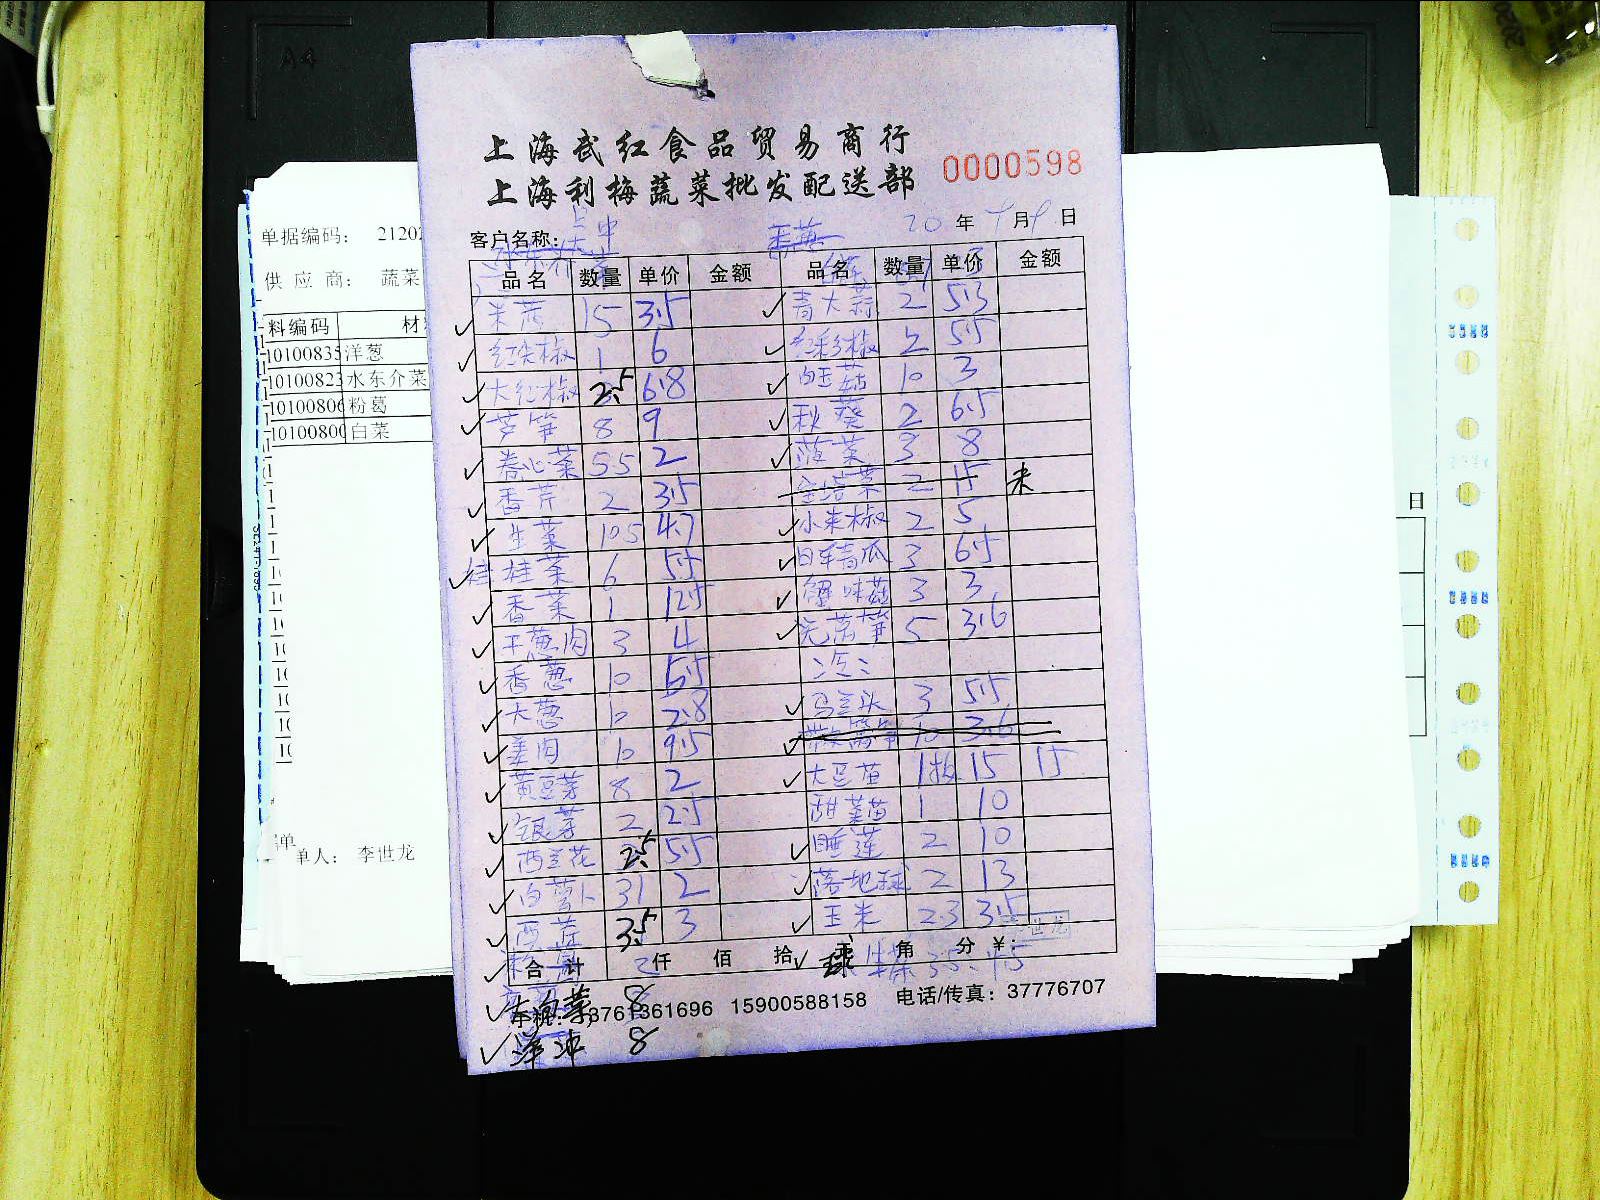 A4
上海武红食品贸易商行
上海利梅蔬菜批发配送部
0000598
客户名称:
20 年 9 月 9 日
品名 数量 单价 金额 品名 数量 单价 金额
15 3.5 青大蒜 2 5.3
红尖椒 1 6 红彩椒 2 5.5
大红椒 2.5 6.8 白玉菇 10 3
芦笋 8 9 秋葵 2 6.5
卷心菜 55 2 菠菜 3 8
香芹 2 3.5 2 15 未
生菜 10.5 4.7 小米椒 2 5
6 5.5 日本青瓜 3 6.5
香菜 1 12.5 蟹味菇 3 3
干葱肉 3 4 光莴笋 5 3.6
香葱 10 5.5
大葱 10 2.8 马兰头 3 5.5
姜肉 10 9.5 带皮莴笋 10 3.6
黄豆芽 8 2 大豆苗 1 15 15
银芽 2 2.5 甜菜苗 1 10
西兰花 25 5.5 睡莲 2 10
白萝卜 31 2 落地球 2 13
西芹 35 3 玉米 23 3.5
合计 仟 佰 拾 角 分 ¥:
手机: 13761361696 15900588158 电话/传真: 37776707
大白菜 8
8
单据编码: 21202
供应商: 蔬菜
料编码 材
10100835 洋葱
10100823 水东介菜
10100806 粉葛
10100800 白菜
单人: 李世龙
日